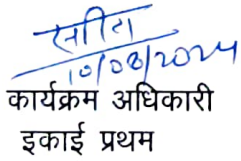 सरिता
10/08/2024
कार्यक्रम अधिकारी
इकाई प्रथम